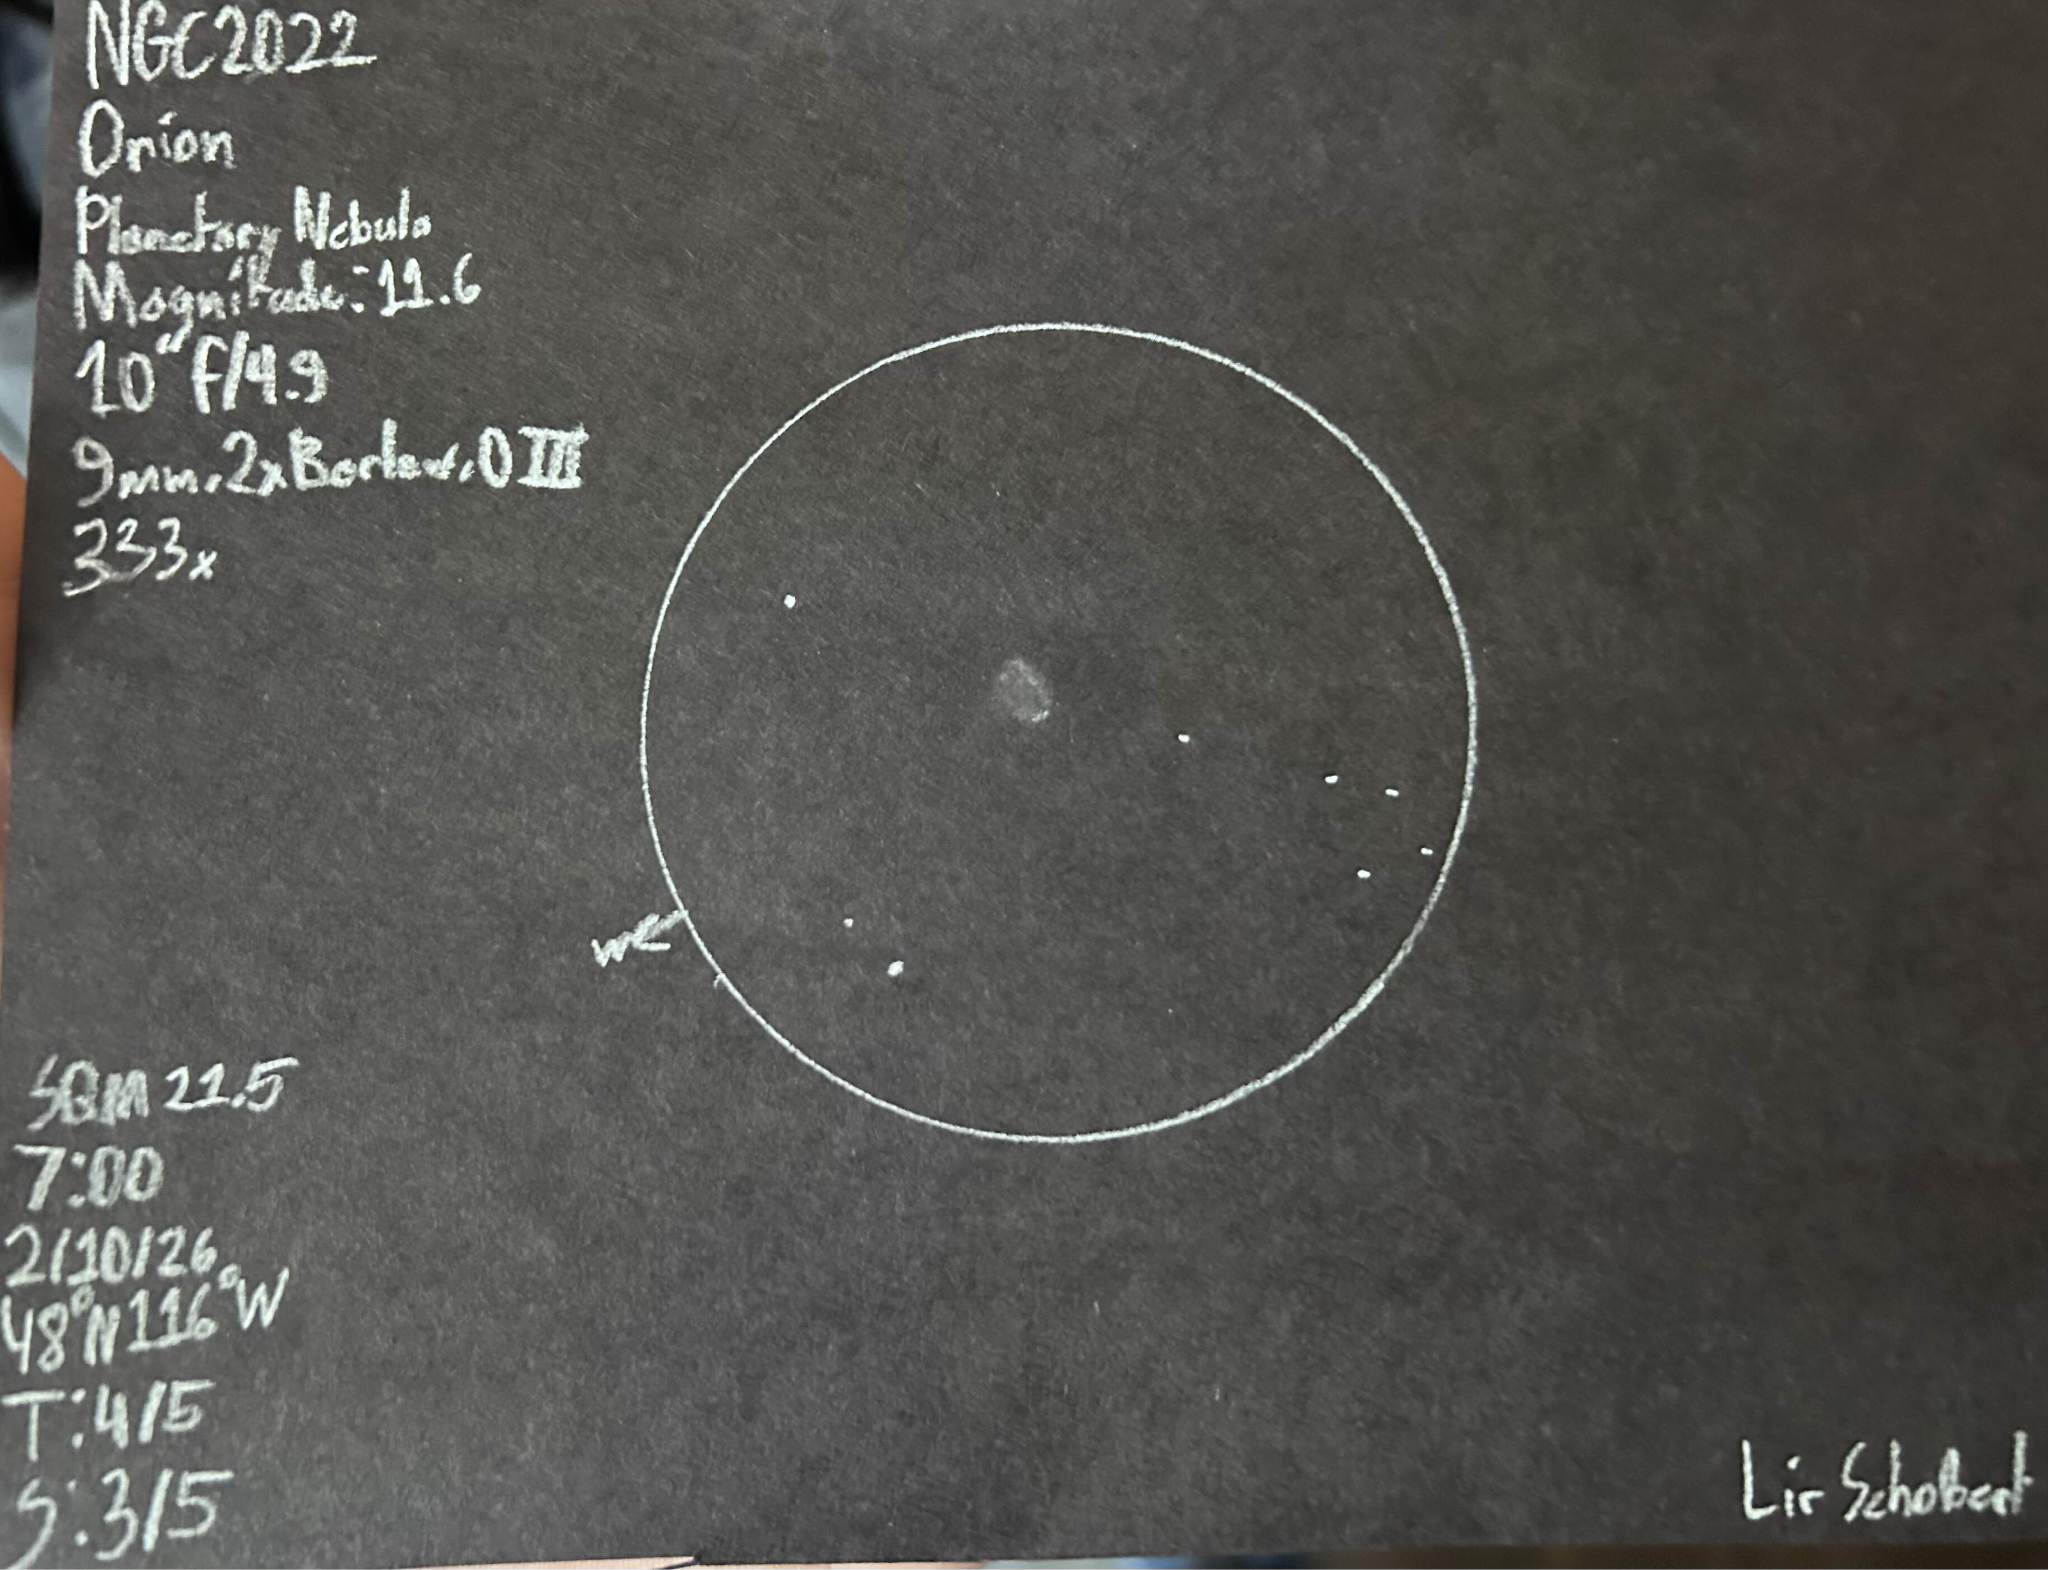 NGC2022
Orion
Planetary Nebula
Magnitude: 11.6
10" f/4.9
9mm, 2x Barlow, O III
333x
W
SQM 21.5
7:00
2/10/26
48°N 116°W
T: 4/5
S: 3/5
Lir Scholbert